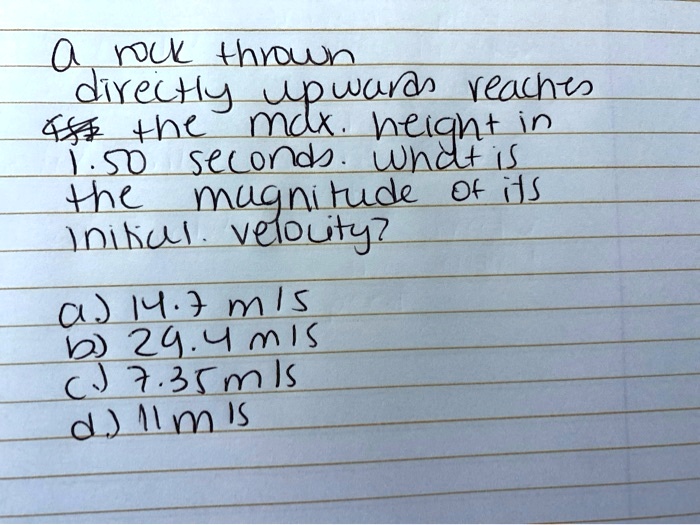 a rock thrown
directly upwards reaches
the max. height in
1.50 seconds. What is
the magnitude of its
initial. velocity?
a.) 14.7 m/s
b) 29.4 m/s
c.) 7.35 m/s
d.) 11 m/s